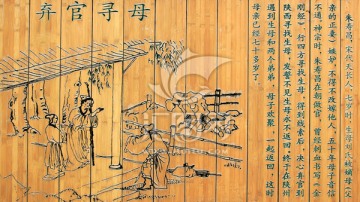 弃官寻母
朱寿昌，宋代天长人，七岁时，生母刘氏被嫡母(父
亲的正妻)嫉妒，不得不改嫁他人，五十年母子音信
不通。神宗时，朱寿昌在朝做官，曾经刺血书写《金
刚经》，行四方寻找生母，得到线索后，决心弃官到
陕西寻找生母，发誓不见生母永不返回。终于在陕州
遇到生母和两个弟弟，母子欢聚，一起返回，这时
母亲已经七十多岁了。